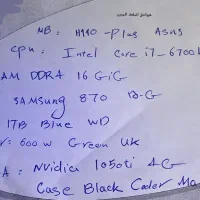 MB: H110-Plus Asus
CPU: Intel Core i7-6700
AM DDR4 16 GiG
SAMSUNG 870
1TB Blue WD
600 W Green UK
A: Nvidia 1050ti 4G
Case Black Cooler Ma